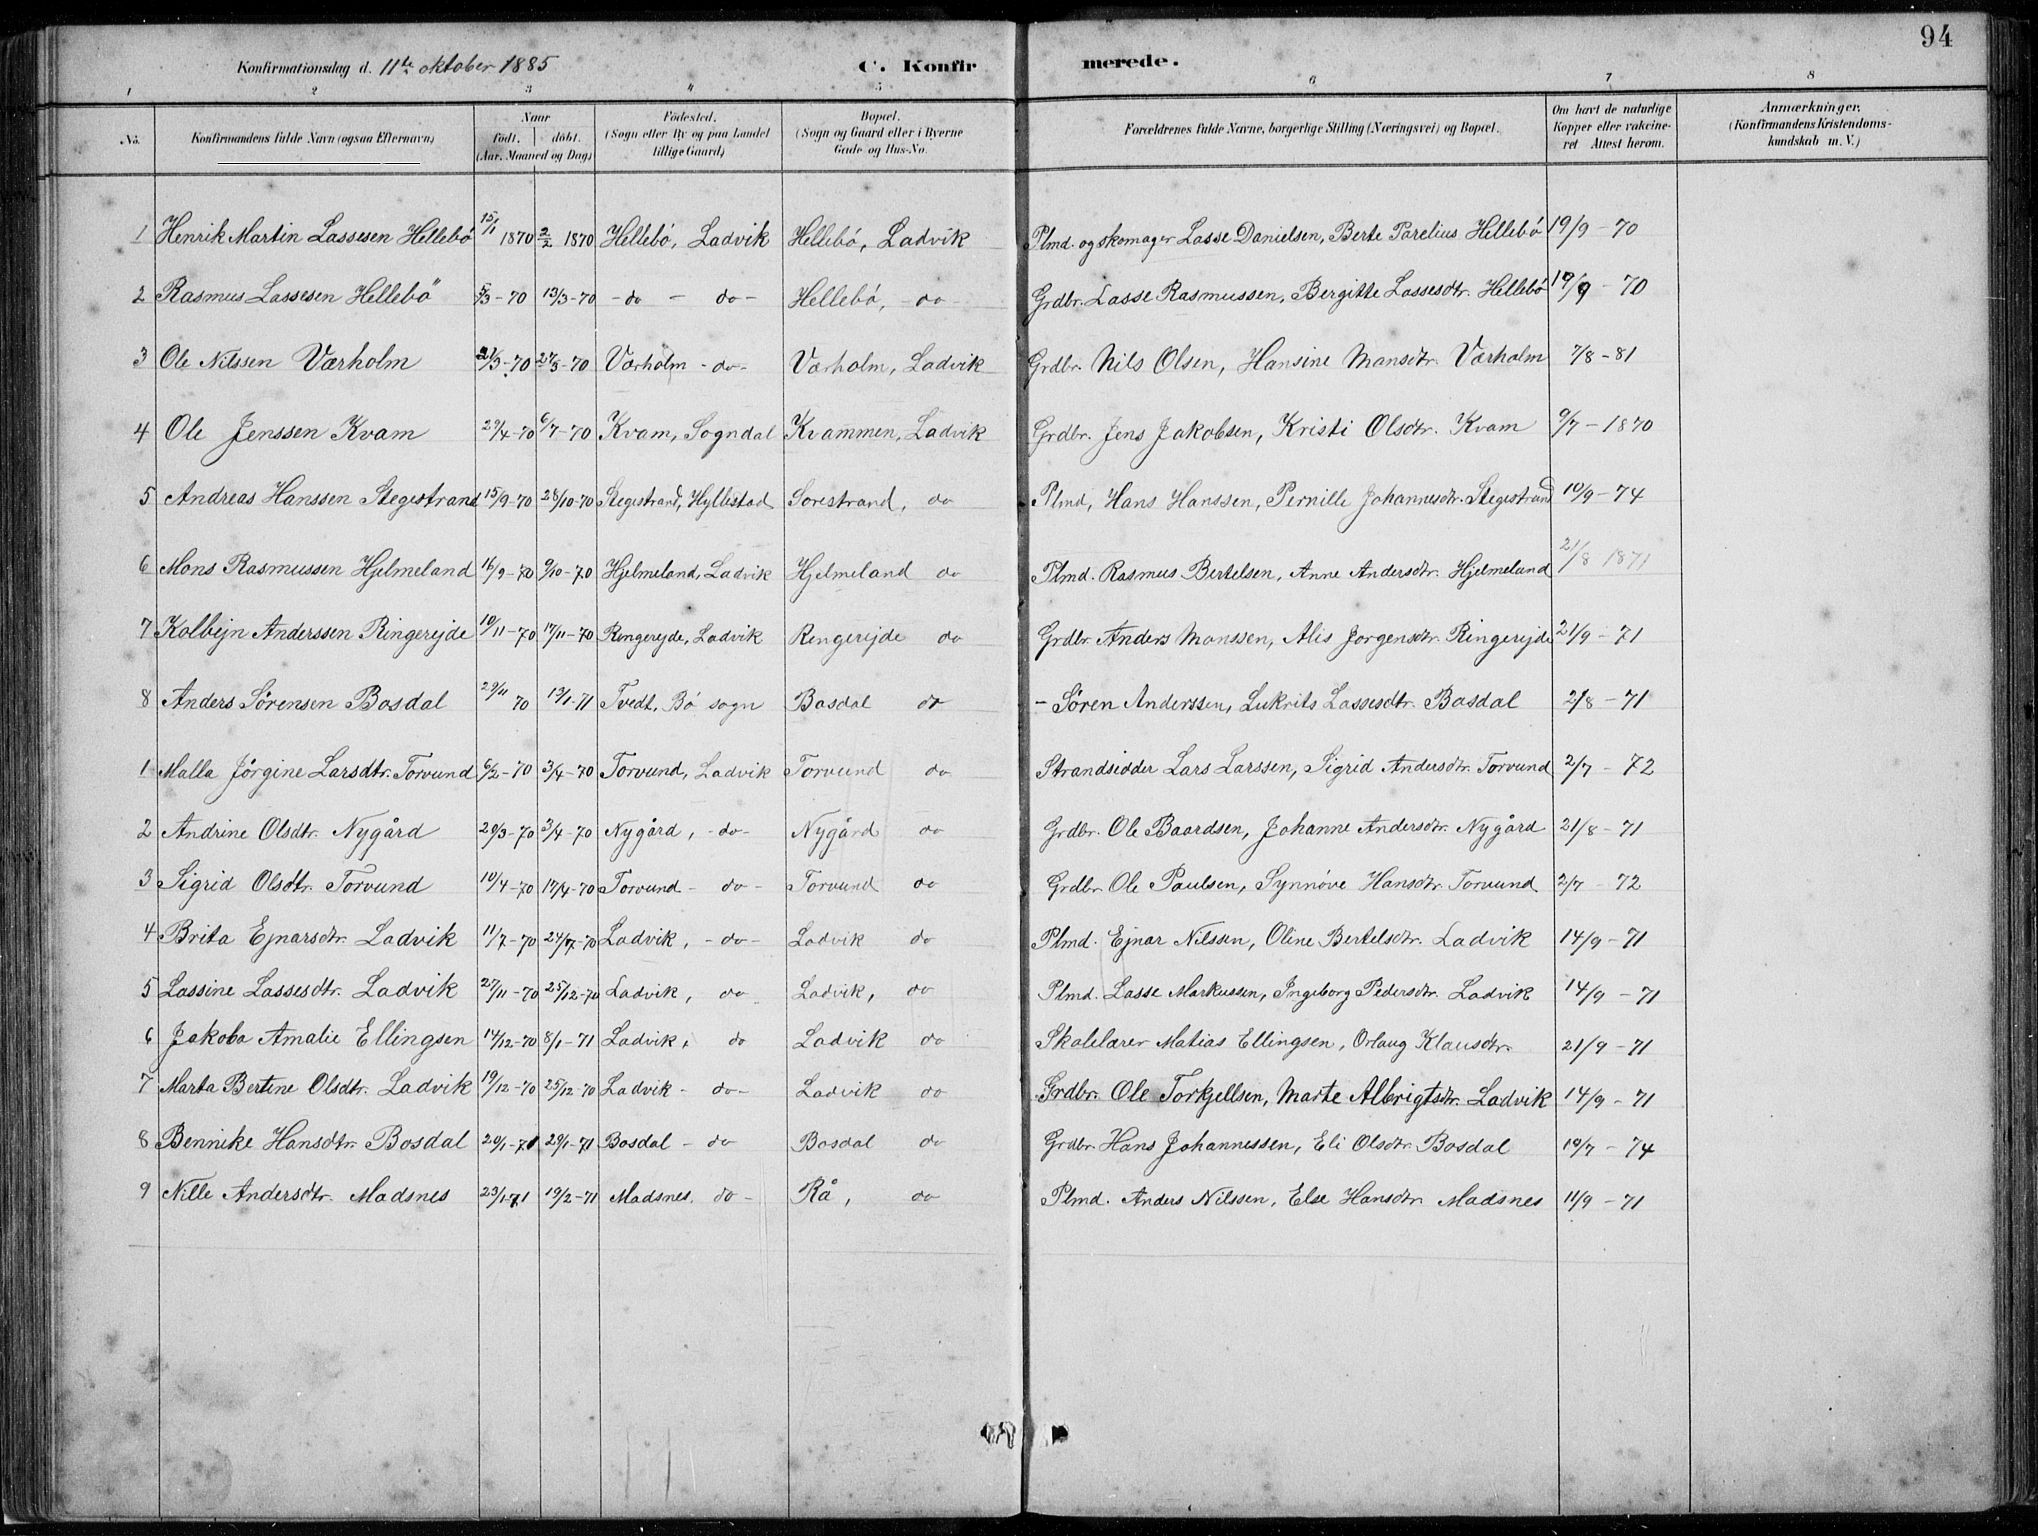 94
Konfirmationsdag d. 11te oktober 1885 C. Konfirmerede.
1 2 3 4 5 6 7 8
No. Konfirmandens fulde Navn (ogsaa Efternavn) Naar født. døbt. (Aar, Maaned og Dag) Fødested. (Sogn eller By og paa Landet tillige Gaard) Bopæl. (Sogn og Gaard eller i Byerne Gade og Hus-No. Forældrenes fulde Navne, borgerlige Stilling (Næringsvei) og Bopæl. Om havt de naturlige Kopper eller vakcineret Attest herom. Anmærkninger. (Konfirmandens Kristendomskundskab m. V.)
1 Henrik Martin Lassesen Hellebø 15/1 1870 2/2 1870 Hellebø, Ladvik Hellebø, Ladvik Plmd. og skomager Lasse Danielsen, Berte Parelius Hellebø 19/9 - 70
2 Rasmus Lassesen Hellebø 5/3 - 70 13/3 - 70 - do - do - Hellebø, - do - Grdbr. Lasse Rasmussen, Bergitte Lassesdtr. Hellebø 17/9 - 70
3 Ole Nilssen Værholm 21/3 - 70 27/3 - 70 Værholm - do - Værholm, Ladvik Grdbr. Nils Olsen, Hansine Mansdtr. Værholm 7/8 - 81
4 Ole Jenssen Kvam 29/4 - 70 6/7 - 70 Kvam, Sogndal Kvammen, Ladvik Grdbr. Jens Jakobsen, Kristi Olsdtr. Kvam 9/7 - 1870
5 Andreas Hanssen Stegestrand 15/9 - 70 28/10 - 70 Stegestrand, Hyllestad Sorestrand, do Plmd, Hans Hanssen, Pernille Johannesdtr. Stegestrand 10/9 - 74
6 Mons Rasmussen Hjelmeland 16/9 - 70 9/10 - 70 Hjelmeland, Ladvik Hjelmeland do Plmd. Rasmus Bertelsen, Anne Andersdtr. Hjelmeland 21/8 1871
7 Kolbejn Anderssen Ringerejde 10/11 - 70 17/11 - 70 Ringerejde, Ladvik Ringerejde do Grdbr Anders Monssen, Alis Jorgensdtr. Ringerejde 21/9 - 71
8 Anders Sörensen Bosdal 29/11 70 13/1 - 71 Tvedt, Bø sogn Bosdal do - Sören Anderssen, Lukrits Lassesdtr. Bosdal 2/8 - 71
1 Malla Jörgine Larsdtr. Torvund 6/2 - 70 3/4 - 70 Torvund, Ladvik Torvund do Strandsidder Lars Larssen, Sigrid Andersdtr. Torvund 2/7 - 72
2 Andrine Olsdtr. Nygård 20/3 - 70 3/4 - 70 Nygård, - do - Nygård do Grdbr. Ole Baardsen, Johanne Andersdtr. Nygård 21/8 - 71
3 Sigrid Olsdtr. Torvund 10/4 - 70 17/4 - 70 Torvund - do - Torvund do Grdbr. Ole Paulsen, Synnøve Hansdtr. Torvund 2/7 - 72
4 Brita Ejnarsdtr. Ladvik 11/7 - 70 24/7 - 70 Ladvik, - do - Ladvik do Plmd. Ejnar Nilssen, Oline Bertelsdtr. Ladvik 14/9 - 71
5 Lassine Lassesdtr. Ladvik 27/11 - 70 25/12 - 70 Ladvik, do Ladvik, do Plmd. Lasse Markussen, Ingeborg Pedersdtr. Ladvik 14/9 - 71
6 Jakoba Amalie Ellingsen 14/12 - 70 8/1 - 71 Ladvik, do Ladvik do Skolelærer Matias Ellingsen, Orlaug Klausdtr. 21/9 - 71
7 Marta Bertine Olsdtr. Ladvik 19/12 - 70 25/12 - 70 Ladvik - do - Ladvik do Grdbr. Ole Torkjellsen, Marte Albrigtsdtr. Ladvik 14/9 - 71
8 Bennike Hansdtr. Bosdal 20/1 - 71 29/1 - 71 Bosdal - do Bosdal do Grdbr. Hans Johannessen, Eli Olsdtr. Bosdal 10/7 - 74
9 Nille Andersdtr. Madsnes 23/1 - 71 19/2 - 71 Madsnes. do - Rå, do Plmd. Anders Nilssen, Else Hansdtr. Madsnes 11/9 - 71